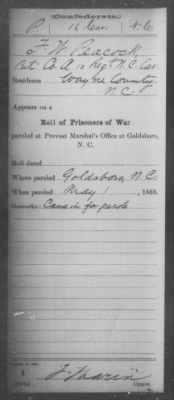 (Confederate.)
P. 16 Sen N.C.
F. W. Peacock
Pvt. Co. A, 16 Regt. N.C.
Residence Wayne County
N.C.
Appears on a
Roll of Prisoners of War
paroled at Provost Marshal's Office at Goldsboro,
N. C.
Roll dated
Where paroled Goldsboro, N.C.
When paroled May 1, 1865.
Remarks: Came in for parole
Copyist.